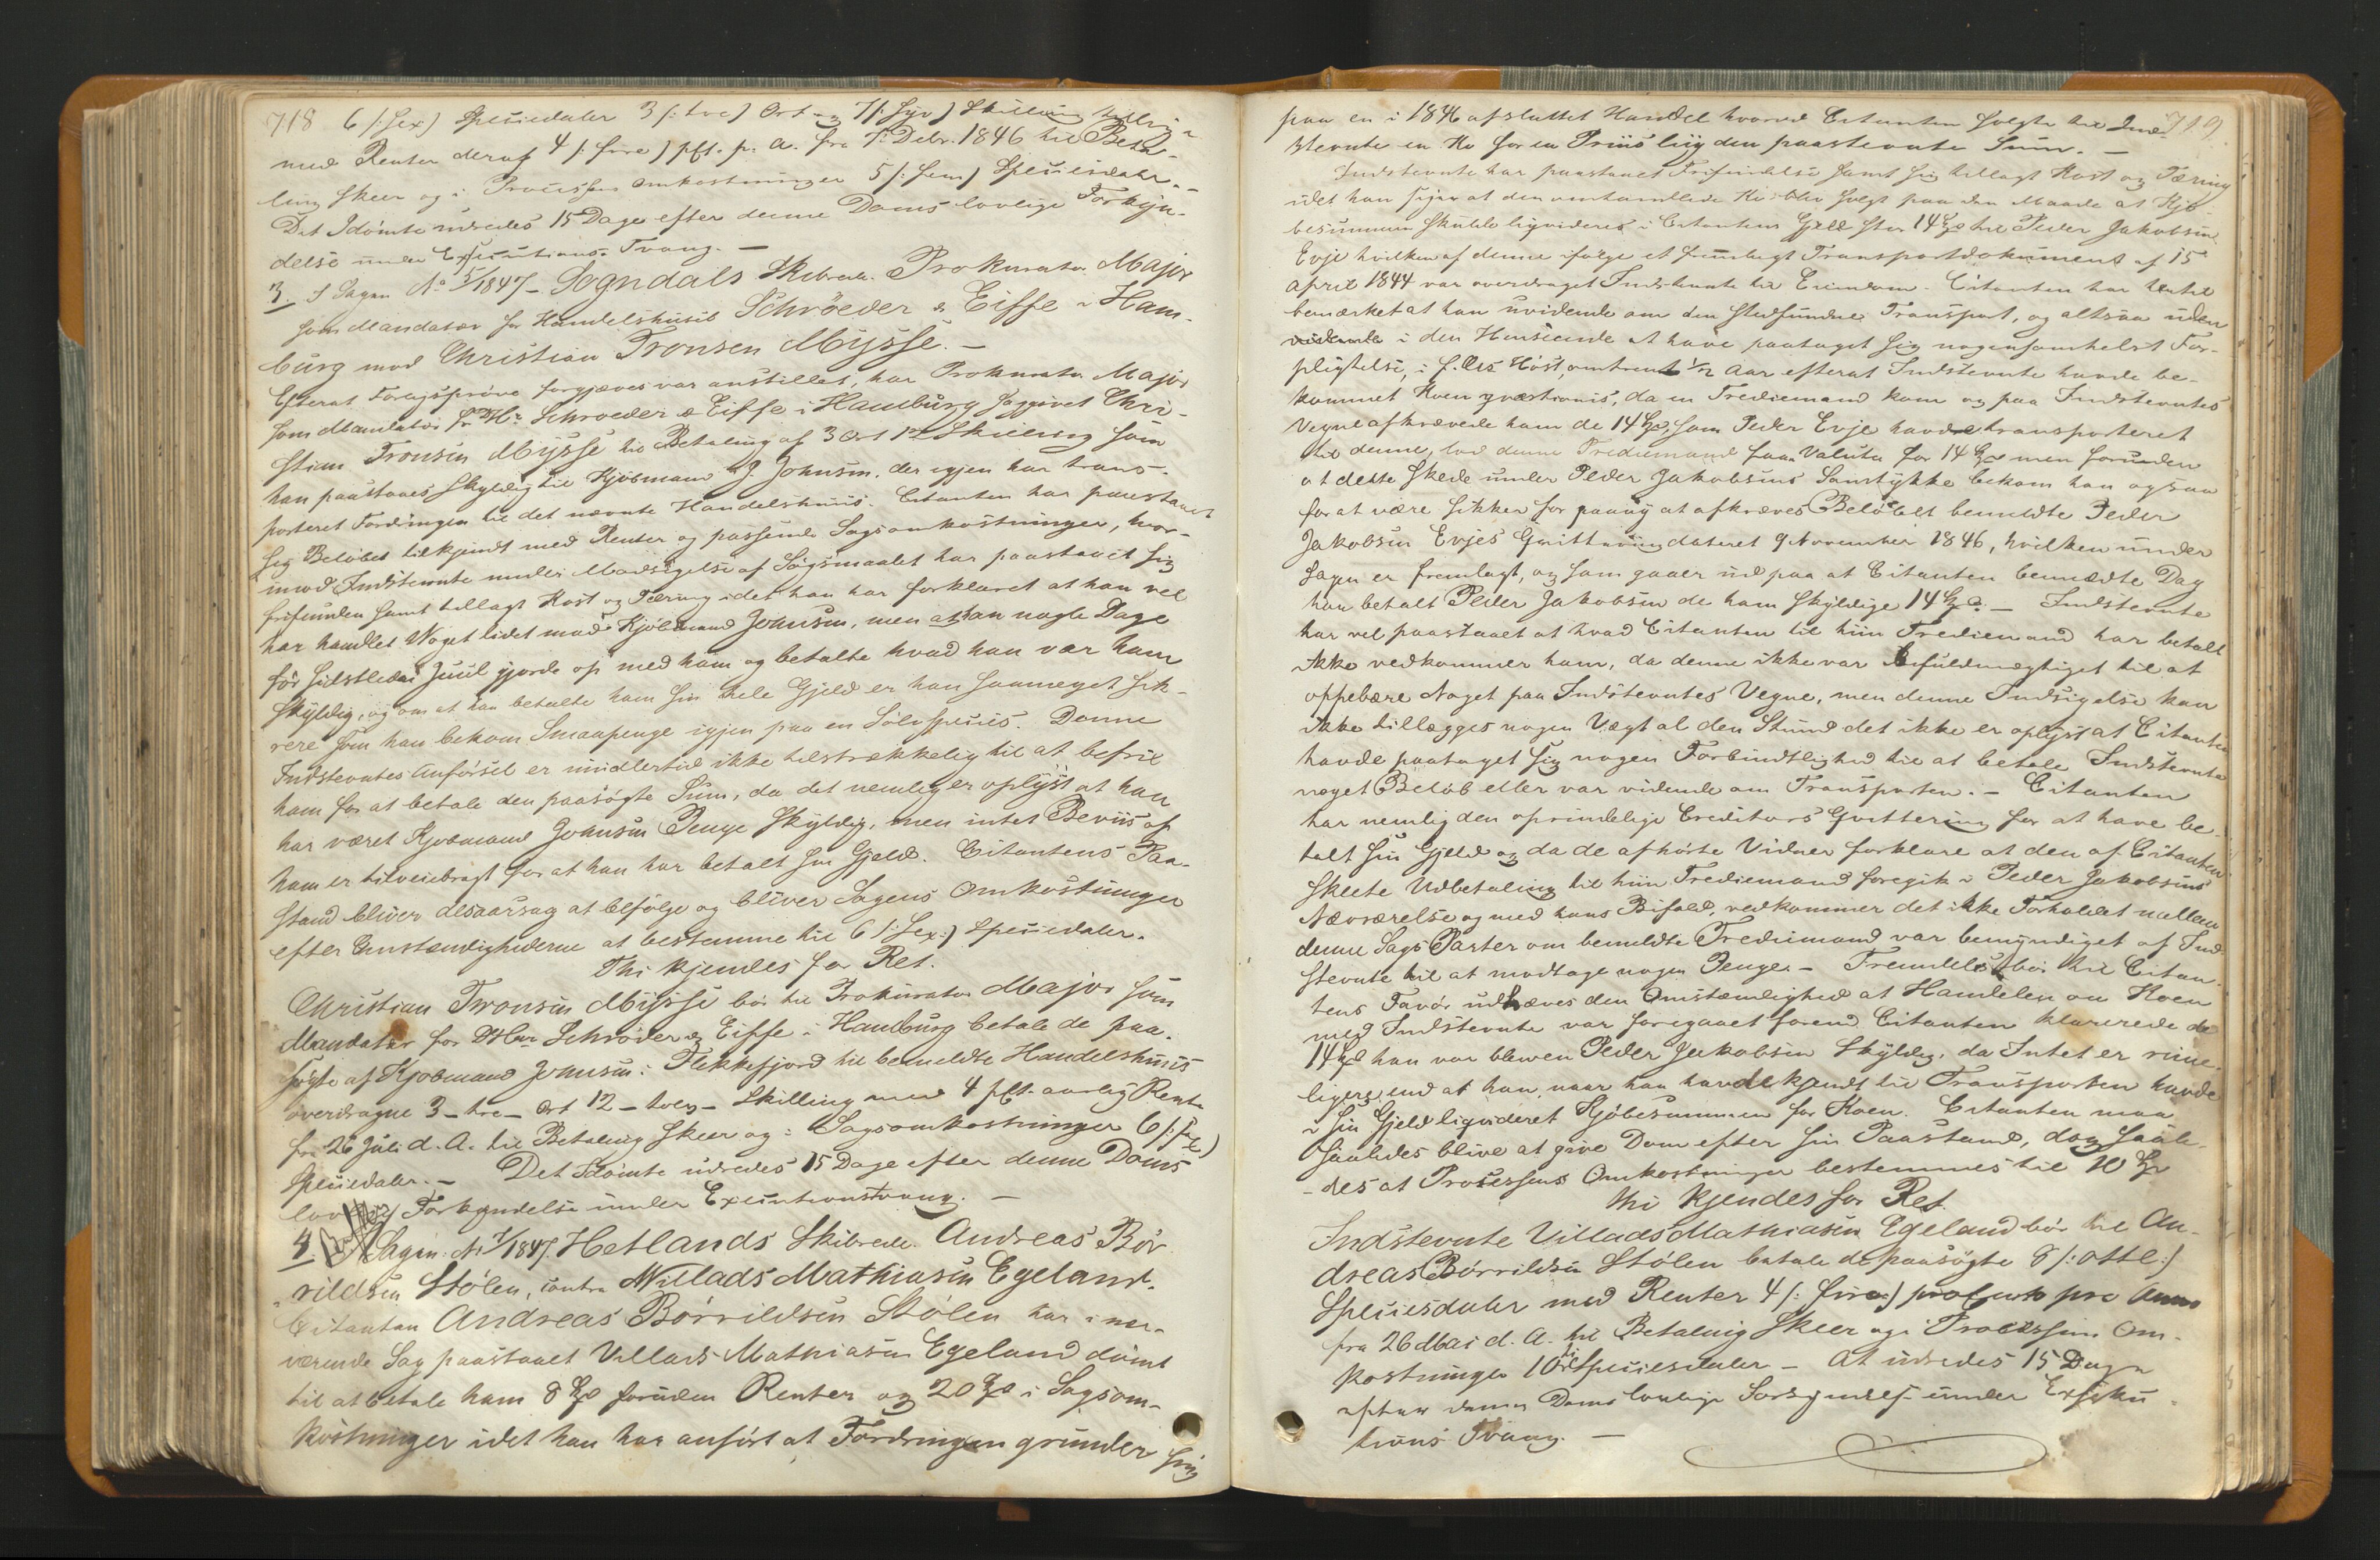 718
6 /: sex) Speciedaler 3 /: tre) Ort og 7 /: syv) Skilling tillig
med Renter deraf 4 /: fire) pCt. p. a. fra 7 Debr. 1846 til Beta-
ling skeer og i Processens Omkostninger 5 /: fem) Speciesdaler.-
Det Idömte udredes 15 Dage efter denne Doms lovlige Forkyn-
delse under Executions Tvang. —
3. I Sagen No 5/1847 - Sogndals Skibrede. Prokurator Major
som Mandatar for Handelshuset Schröeder & Eiffe i Ham-
burg mod Christian Tronsen Mysse. —
Efterat Forligsprøve forgjæves var anstillet, har Prokurator Major
som Mandatar for Hr Schroeder & Eiffe i Hamburg søgt Chri-
stian Tronsen Mysse til Betaling af 3 Ort 12 Skilling som
han paastaaes skyldig til Kjöbmand J. Johnsen, der igjen har trans-
porteret Fordringen til det nævnte Handelshuus. Citanten har paastaaet
sig Beløbet tilkjendt med Renter og passende Sagsomkostninger, hvor-
imod Indstevnte under Modsigelse af Søgsmaalet har paastaaet sig
frifunden samt tillagt Kost og Tæring idet han har forklaret at han vel
har handlet Noget lidet med Kjöbmand Johnsen, men at han nogle Dage
för sidstleden Juul gjorde op med ham og betalte hvad han var ham
skyldig, og om at han betalte ham sin hele Gjeld er han saameget sik-
rere som han bekom Smaapenge igjen paa en Sölvspecies. Denne
Indstevntes Anförsel er imidlertid ikke tilstrækkelig til at befrie
ham for at betale den paasögte Sum, da det nemlig er oplyst at han
har været Kjöbmand Johnsen Penge skyldig, men intet Beviis af
ham er tilveiebragt for at han har betalt sin Gjeld. Citantens Paa-
stand bliver desaarsag at befölge og bliver Sagens Omkostninger
efter Omstændighederne at bestemme til 6 /: sex:) Speciedaler.
Thi kjendes for Ret.
Christian Tronsen Mysse bör til Prokurator Major som
Mandatar for DHrr Schröder & Eiffe i Hamburg betale de paa-
sögte af Kjöbmand Johnsen i Flekkefjord til bemeldte Handelshuus
overdragne 3 - tre - Ort 12 - tolv - Skilling med 4 pCt. aarlig Rente
fra 26 Juli d. A. til Betaling skeer og i Sagsomkostninger 6 /: sex)
Speciedaler. — Det Idömte udredes 15 Dage efter denne Doms
lovlige Forkyndelse under Executionstvang. —
4. I Sagen No 7/1847. Hetlands Skibrede. Andreas Bör-
rildsen Stölen, contra Villads Mathiasen Egeland.
Citanten Andreas Börrildsen Stölen har i nær-
værende Sag paastaaet Villads Mathiasen Egeland dömt
til at betale ham 8 Spd foruden Renter og 20 Spd i Sagsom-
kostninger idet han har anfört at Fordringen grunder sig
719
paa en i 1846 afsluttet Handel hvorved Citanten solgte til Ind-
stevnte en Ko for en Priis liig den paastevnte Sum. —
Indstevnte har paastaaet Frifindelse samt sig tillagt Kost og Tæring
idet han siger at den omhandlede Ko blev solgt paa den Maade at Kjö-
besummen skulde ligvideres i Citantens Gjeld stor 14 Spd til Peder Jakobsen
Evje hvilken af denne ifölge et fremlagt Transportdokument af 15
April 1844 var overdraget Indstevnte til Eiendom. Citanten har hertil
bemærket at han uvidende om den stedfundne Transport, og altsaa uden
i den Henseende at have paataget sig nogensomhelst For-
pligtelse, i f. Aars Höst, omtrent 1/2 Aar efterat Indstevnte havde be-
kommet Koen qvæstionis, da en Trediemand kom og paa Indstevntes
Vegne afkrævede ham de 14 Spd, som Peder Evje havde transporteret
til denne, lod denne Trediemand faae Valuta for 14 Spd men foruden
at dette skede under Peder Jakobsens Samtykke bekom han ogsaa
for at være sikker for paany at afkræves Belöbet bemeldte Peder
Jakobsen Evjes Qvittering dateret 9 November 1846, hvilken under
Sagen er fremlagt, og som gaaer ud paa at Citanten bemeldte Dag
har betalt Peder Jakobsen de ham skyldige 14 Spd. — Indstevnte
har vel paastaaet at hvad Citanten til hiin Trediemand har betalt
ikke vedkommer ham, da denne ikke var befuldmægtiget til at
oppebære Noget paa Indstevntes Vegne, men denne Indsigelse kan
ikke tillægges nogen Vægt al den Stund det ikke er oplyst at Citanten
havde paataget sig nogen Forbindtlighed til at betale Indstevnte
noget Belöb eller var vidende om Transporten. — Citanten
har nemlig den oprindelige Creditors Qvittering for at have be-
talt sin Gjeld og da de afhörte Vidner forklare at den af Citanten
skeete Udbetaling til hiin Trediemand foregik i Peder Jakobsens
Nærværelse og med hans Bifald, vedkommer det ikke Forholdet mellem
denne Sags Parter om bemeldte Trediemand var bemyndiget af Ind-
stevnte til at modtage nogen Penge. — Fremdeles bör til Citan-
tens Favör udhæves den Omstændighed at Handelen om Koen
med Indstevnte var foregaaet forend Citanten klarerede de
14 Spd han var bleven Peder Jakobsen skyldig, da Intet er rime-
ligere end at han, naar han havde kjendt til Transporten havde
i sin Gjeld ligvideret Kjöbesummen for Koen. Citanten maa
saaledes blive at give Dom efter sin Paastand, dog saale-
des at Processens Omkostninger bestemmes til 10 Spd
Thi kjendes for Ret
Indstevnte Villads Mathiasen Egeland bör til An-
dreas Börrildsen Stölen betale de paasögte 8 /: otte:)
Speciesdaler med Renter 4 /: fire:) procento pro Anno
fra 26 Mai d. A. til Betaling skeer og i Processens Om-
kostninger 10 ti Speciesdaler — At udredes 15 Dage
efter denne Doms lovlige Forkyndelse under Exseku-
tions Tvang. —